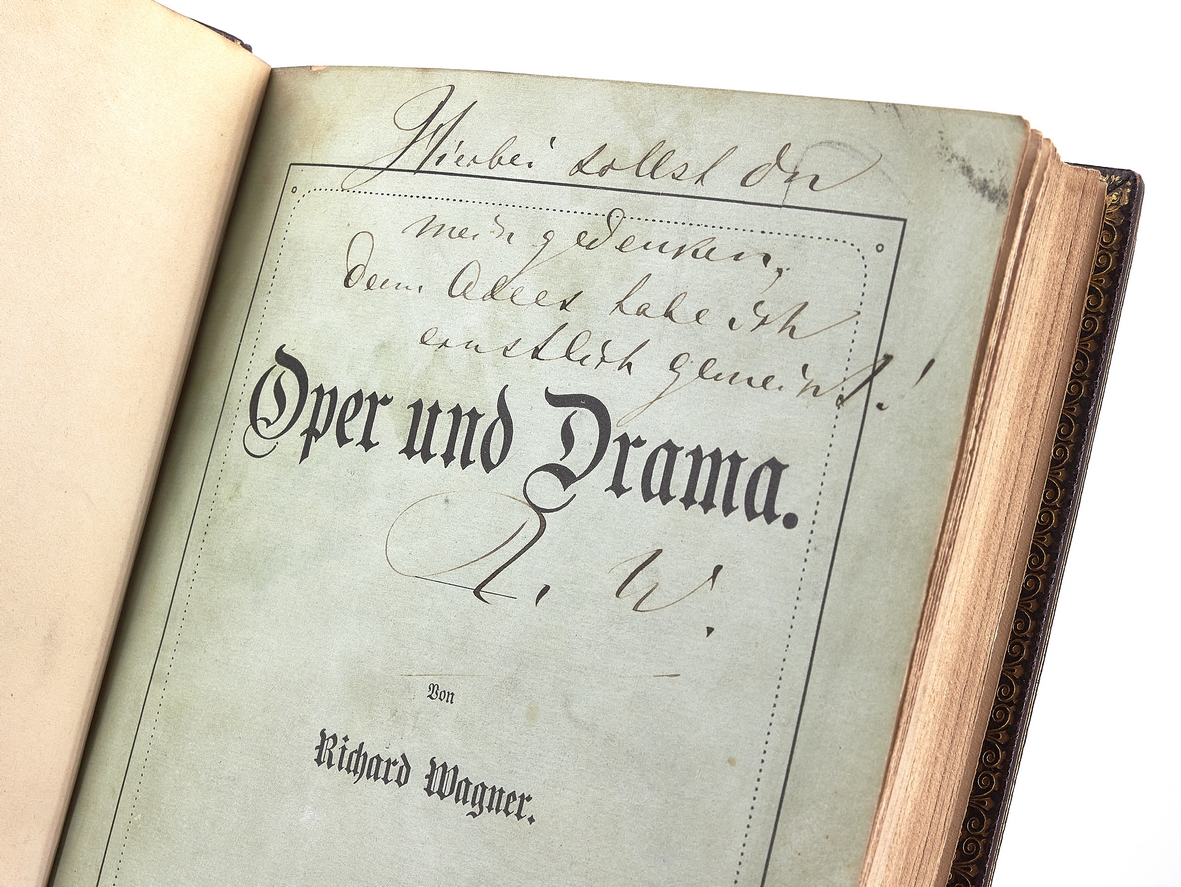 Hierbei sollst du
mein gedenken,
denn Alles habe ich
ernstlich gemeint!
Oper und Drama.
R. W.
Von
Richard Wagner.